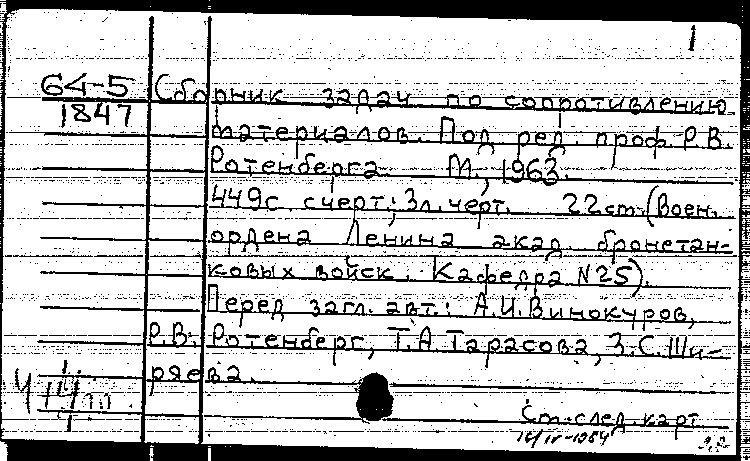 1
64-5 Сборник задач по сопротивлению
1847 материалов. Под ред. проф. Р.В.
Ротенберга М., 1963.
449с с черт.; 3л. черт. 22 ст. (Воен.
ордена Ленина акад. бронетан-
ковых войск. Кафедра N25).
Перед загл. авт.: А.И. Винокуров,
Р.В. Ротенберг, Т.А. Тарасова, З.С. Ши-
ряева.
См. след. карт